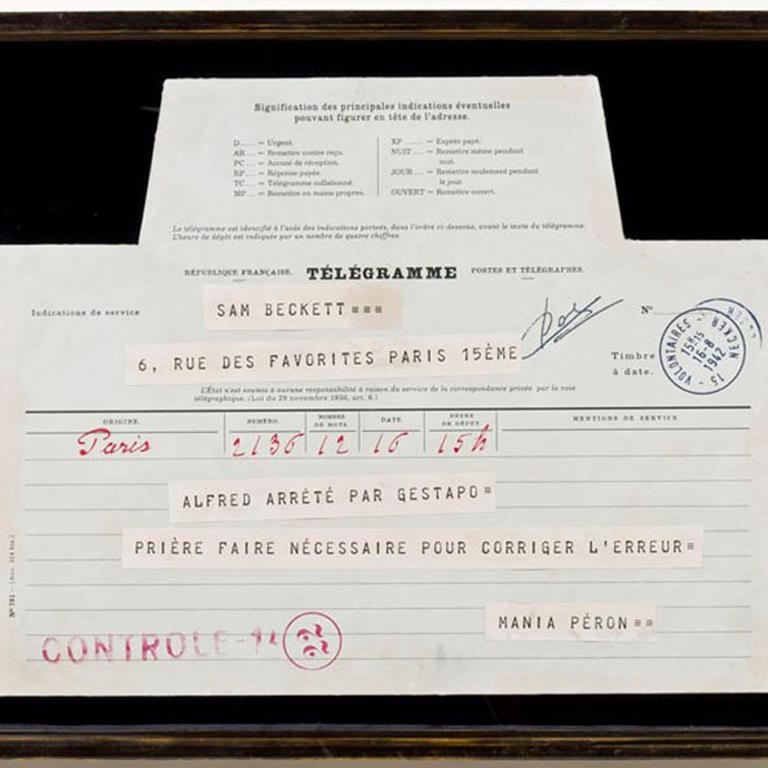 Signification des principales indications éventuelles
pouvant figurer en tête de l'adresse.
D..... = Urgent.
AR... = Remettre contre reçu.
PC... = Accusé de réception.
RP... = Réponse payée.
TC... = Télégramme collationné.
MP... = Remettre en mains propres.
XP...... = Exprès payé.
NUIT... = Remettre même pendant
nuit.
JOUR... = Remettre seulement pendant
le jour.
OUVERT = Remettre ouvert.
Le télégramme est identifié à l'aide des indications portées, dans l'ordre ci-dessous, avant le texte du télégramme.
L'heure de dépôt est indiquée par un nombre de quatre chiffres.
RÉPUBLIQUE FRANÇAISE. TÉLÉGRAMME POSTES ET TÉLÉGRAPHES.
Indications de service
SAM BECKETT===
N°
6, RUE DES FAVORITES PARIS 15ÈME
Timbre
à date.
15 VOLONTAIRES NECKER
15H
16-8
1942
L'État n'est soumis à aucune responsabilité à raison du service de la correspondance privée par la voie
télégraphique. (Loi du 29 novembre 1850, art. 6.)
ORIGINE. NUMÉRO. NOMBRE DE MOTS. DATE. HEURE DE DÉPÔT. MENTIONS DE SERVICE
Paris 2136 12 16 15h
ALFRED ARRÈTÉ PAR GESTAPO=
PRIÈRE FAIRE NÉCESSAIRE POUR CORRIGER L'ERREUR=
MANIA PÉRON==
CONTROLE
N° 701